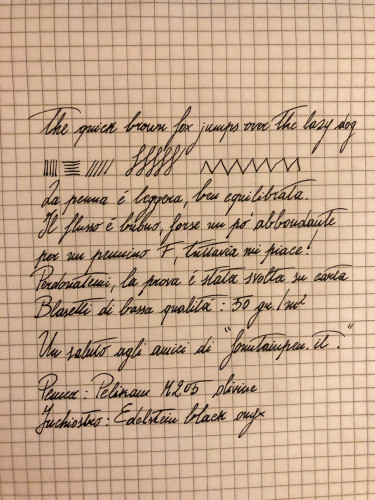 The quick brown fox jumps over the lazy dog
La penna é leggera, ben equilibrata.
Il flusso é buono, forse un po' abbondante
per un pennino F, tuttavia mi piace!
Perdonatemi, la prova é stata svolta su carta
Blasetti di bassa qualitá: 50 gr./m²
Un saluto agli amici di "fountainpen.it."
Penna: Pelikan M205 olivine
Inchiostro: Edelstein black onyx